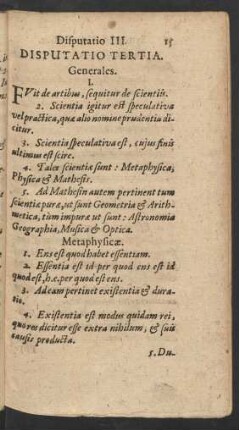 Disputatio III. 15
DISPUTATIO TERTIA.
Generales.
I.
FVit de artibus, sequitur de scientiis.
2. Scientia igitur est speculativa
vel practica, quæ alio nomine prudentia di-
citur.
3. Scientia speculativa est, cujus finis
ultimus est scire.
4. Tales scientiæ sunt: Metaphysica,
Physica & Mathesis.
5. Ad Mathesin autem pertinent tum
scientiæ puræ, ut sunt Geometria & Arith-
metica, tùm impuræ ut sunt: Astronomia
Geographia, Musica & Optica.
Metaphysicæ.
1. Ens est quod habet essentiam.
2. Essentia est id per quod ens est id
quod est, h.e. per quod est ens.
3. Ad eam pertinet existentia & dura-
tio.
4. Existentia est modus quidam rei,
quo res dicitur esse extra nihilum, & suis
causis producta.
5. Du-